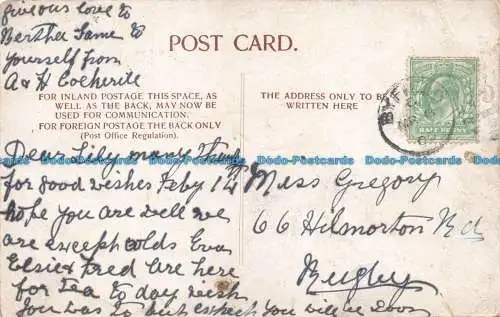 give our love to
Bertha Same to
yourself from
A & H
POST CARD.
FOR INLAND POSTAGE THIS SPACE, AS
WELL AS THE BACK, MAY NOW BE
USED FOR COMMUNICATION.
FOR FOREIGN POSTAGE THE BACK ONLY
(Post Office Regulation).
THE ADDRESS ONLY TO BE
WRITTEN HERE
HALFPENNY
Dear Lily many Thanks
for good wishes Feby 14
hope you are well we
are except colds Eva
Elsie & Fred are here
for Tea to day wish
you was to but expect you will be
Miss Gregory
66 Hilmorton Rd
Rugby
Ado-Postcards.com